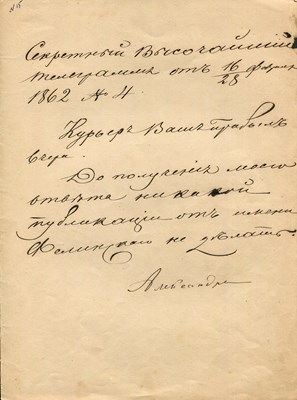 № 5
Секретный Высочайший
телеграммъ отъ 16/28 Февраля
1862 № 4.
Курьеръ Вашъ прибылъ
вчера.
До полученія моего
отвѣта никакой
публикаціи отъ имени
Фелинскаго не дѣлать.
Александръ